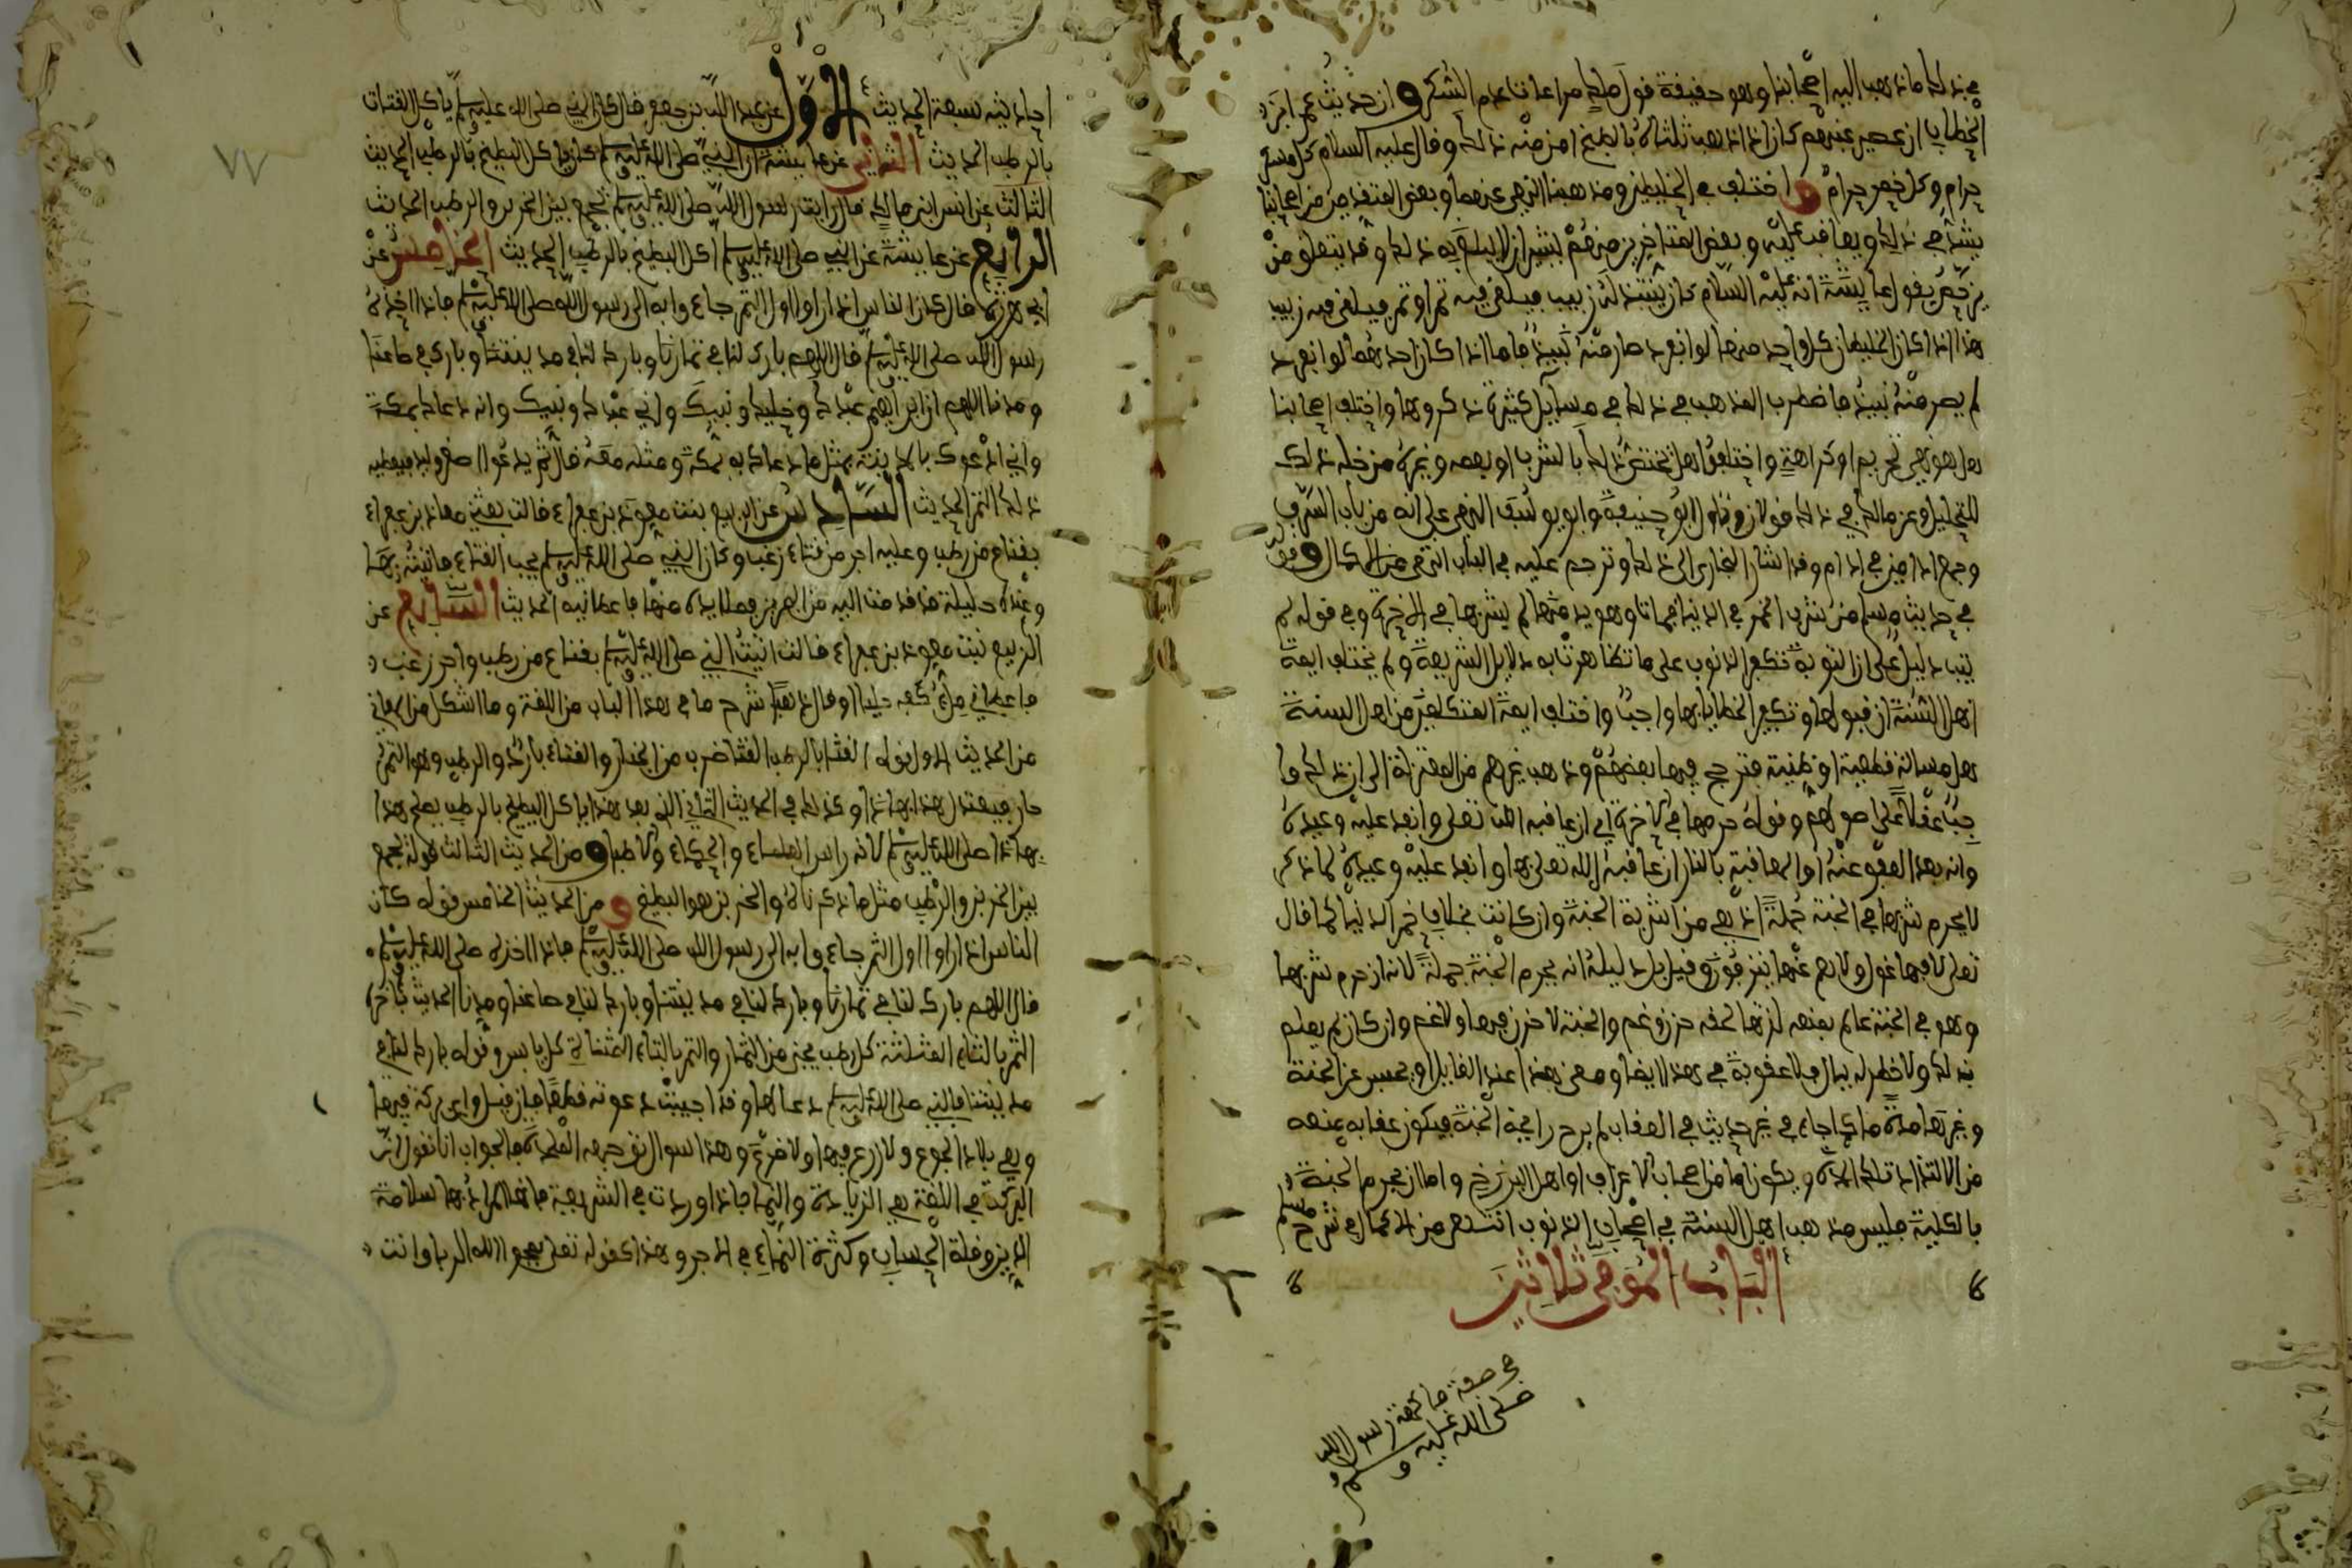 في ذلك ما ذهب اليه اصحابنا وهو حقيقة قول ملك مراعات عدم السكر و ان حديث عمر ابن
الخطاب ان عصير عنبهم كان اذا ذهب ثلثاه بالطبخ امن منه ذلك وقال عليه السلام كل مسكر
حرام وكل خمر حرام و اختلف في الخليطين ومذهبنا النهي عنهما وبعض المتقدمين من اصحابنا
يشدد في ذلك ويعاقب عليه وبعض المتاخرين منهم
بن جعفر يقول عايشة انه عليه السلام كان ينتبذ له زبيب فيلقى فيه تمر او تمر فيلقى فيه زبيب
هذا اذا كان الخليطان كل واحد منهما لو انفرد صار منه نبيذ فاما اذا كان احدهما لو انفرد
لم يصر منه نبيذ فاضطرب المذهب في ذلك في مسايل كثيرة ذكروها واختلف اصحابنا
هل هو نهي تحريم او كراهة واختلفوا هل يختص ذلك بالشرب او يعمه وغيره من خله ذلك
للتخليل وعن مالك في ذلك قولان وتاول ابو حنيفة وابو يوسف النهي على انه من باب السرف
وجمع ادامين في ادام وقد اشار البخاري الى ذلك وترجم عليه في الباب انتهى من الاكمال و قوله
في حديث مسلم من شرب الخمر في الدنيا فمات وهو يدمنها لم يشربها في الاخرة وفي قوله لم
يتب دليل على ان التوبة تكفر الذنوب على ما تظاهرت به دلايل الشريعة ولم يختلف ايمة
اهل السنة ان قبولها وتكفير الخطايا بها واجبا واختلف ايمة المتكلمين من اهل السنة
هل مسالة قطعية او ظنية فترجح فيها بعضهم وذهب غيرهم من المعتزلة الى ان ذلك وا
جبا عقلا على اصولهم وقوله حرمها في الاخرة اي ان عاقبه الله تعلى وانفذ عليه وعيده
وانه بعد العفو عنه او المعاقبة بالنار ان عاقبه الله تعلى بها وانفذ عليه وعيده كما ذكر
لا يحرم شربها في الجنة جملة اذ هي من اشربة الجنة وان كانت بخلاف خمر الدنيا كما قال
تعلى لا فيها غول ولا هم عنها ينزفون وقيل بل دليله انه يحرم الجنة جملة لانه ان حرم شربها
وهو في الجنة عالم بمنعه لزمها لحقه حزن وغم والجنة لا حزن فيها ولا غم وان كان لم يعلم
بذلك ولا خطر له ببال فلا عقوبة في هذا ايضا ومعنى هذا عند القايل او يحبس عن الجنة
وغيرها مدة ما كما جاء في غير حديث في العقاب لم يرح رايحة الجنة فيكون عقابه بمنعه
من الالتذاذ تلك المدة ويكون اما من اصحاب الاعراف او اهل البرزخ واما ان يحرم الجنة
بالكلية فليس مذهب اهل السنة في اصحاب الذنوب انتهى من الاكمال في شرح مسلم
الباب الموفي ثلاثين
في صفة فاكهة رسول الله
صلى الله عليه وسلم
احاديثه سبعة الحديث الاول عن عبد الله بن جعفر قال كان النبي صلى الله عليه وسلم ياكل القثاء
بالرطب الحديث الثاني عن عايشة ان النبي صلى الله عليه وسلم كان ياكل البطيخ بالرطب الحديث
الثالث عن انس ابن مالك قال رايت رسول الله صلى الله عليه وسلم يجمع بين الخربز والرطب الحديث
الرابع عن عايشة عن النبي صلى الله عليه وسلم اكل البطيخ بالرطب الحديث الخامس عن
ابي هريرة قال كان الناس اذا راوا اول الثمر جاءوا به الى رسول الله صلى الله عليه وسلم فاذا اخذه
رسول الله صلى الله عليه وسلم قال اللهم بارك لنا في ثمارنا وبارك لنا في مدينتنا وبارك في صاعنا
ومدنا اللهم ان ابراهيم عبدك وخليلك ونبيك واني عبدك ونبيك وانه دعاك بمكة
واني ادعوك بالمدينة بمثل ما دعاك به بمكة ومثله معه قال ثم يدعوا اصغر وليد فيعطيه
ذلك الثمر الحديث السادس عن الربيع بنت معوذ بن عفراء قالت بعثني معاذ بن عفراء
بقناع من رطب وعليه اجر من قثاء زغب وكان النبي صلى الله عليه وسلم يحب القثاء فاتيته بها
وعنده حلية قد قدمت اليه من البحرين فملا يده منها فاعطانيه الحديث السابع عن
الربيع بنت معوذ بن عفراء قالت اتيت النبي صلى الله عليه وسلم بقناع من رطب واجر زغب
فاعطاني ملء كفه حليا او قال ذهبا شرح ما في هذا الباب من اللغة وما اشكل من المعاني
من الحديث الاول قوله القثاء بالرطب القثا ضرب من الخيار والقثاء بارد والرطب وهو التمر
حار فيعتدل هذا بهذا وكذلك في الحديث الثاني الذي بعد هذا ياكل البطيخ بالرطب يعني هذا
بهذا صلى الله عليه وسلم لانه راس العلماء والحكماء والاطباء و من الحديث الثالث قوله يجمع
بين الخربز والرطب مثل ما ذكرناه والخربز هو البطيخ و من الحديث الخامس قوله كان
الناس اذا راوا اول الثمر جاءوا به الى رسول الله صلى الله عليه وسلم فاذا اخذه صلى الله عليه وسلم
قال اللهم بارك لنا في ثمارنا وبارك لنا في مدينتنا وبارك لنا في صاعنا ومدنا الحديث باخره
الثمر بالثاء المثلثة كل رطب يجنى من الثمار والتمر بالتاء المثناة كل يابس وقوله بارك لنا في
مدينتنا فالنبي صلى الله عليه وسلم دعا لها وقد اجيبت دعوته قطعا فان قيل واي بركة فيها
وهي بلاد الجوع ولا زرع فيها ولا ضرع وهذا سوال توجهه الملحدة فالجواب انا نقول ان
البركة في اللغة هي الزيادة والنما فاذا وردت في الشريعة فانما المراد بها سلامة
الدين وقلة الحساب وكثرة النماء في الاجر وهذا كقوله تعلى يمحو الله الربا وانت